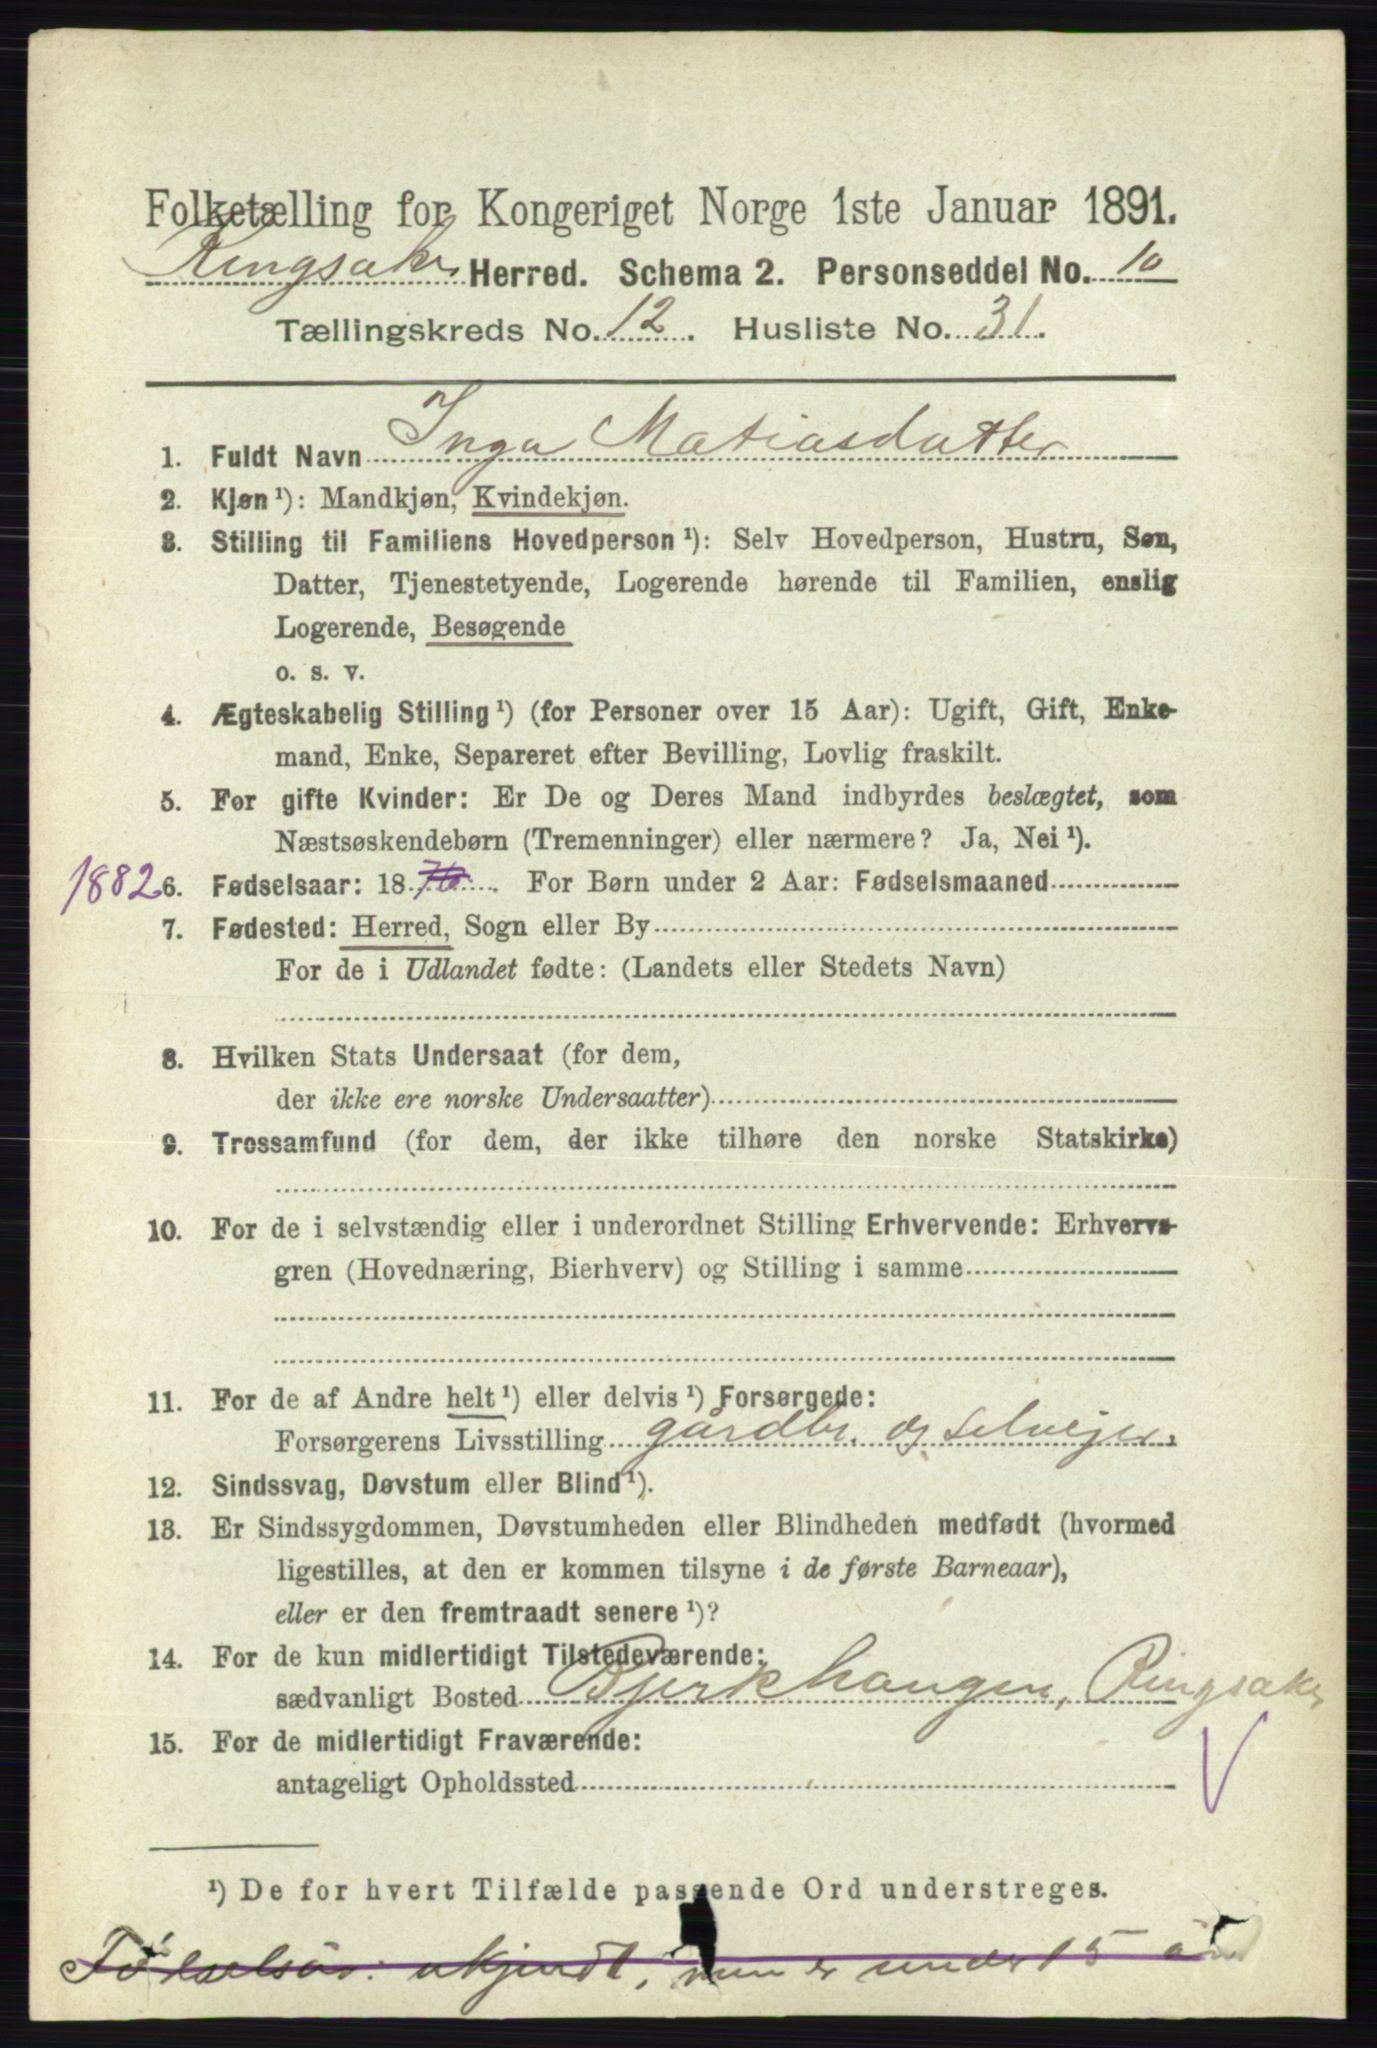 Folketælling for Kongeriget Norge 1ste Januar 1891.
Ringsaker Herred. Schema 2. Personseddel No. 10
Tællingskreds No. 12. Husliste No. 31.
1. Fuldt Navn Inga Matiasdatter
2. Kjøn ¹): Mandkjøn, Kvindekjøn.
3. Stilling til Familiens Hovedperson ¹): Selv Hovedperson, Hustru, Søn,
Datter, Tjenestetyende, Logerende hørende til Familien, enslig
Logerende, Besøgende
o. s. v.
4. Ægteskabelig Stilling ¹) (for Personer over 15 Aar): Ugift, Gift, Enke-
mand, Enke, Separeret efter Bevilling, Lovlig fraskilt.
5. For gifte Kvinder: Er De og Deres Mand indbyrdes beslægtet, som
Næstsøskendebørn (Tremenninger) eller nærmere? Ja, Nei ¹).
1882 6. Fødselsaar: 1876. For Børn under 2 Aar: Fødselsmaaned
7. Fødested: Herred, Sogn eller By
For de i Udlandet fødte: (Landets eller Stedets Navn)
8. Hvilken Stats Undersaat (for dem,
der ikke ere norske Undersaatter)
9. Trossamfund (for dem, der ikke tilhøre den norske Statskirke)
10. For de i selvstændig eller i underordnet Stilling Erhvervende: Erhvervs-
gren (Hovednæring, Bierhverv) og Stilling i samme
11. For de af Andre helt ¹) eller delvis ¹) Forsørgede:
Forsørgerens Livsstilling gårdbr. og selvejer.
12. Sindssvag, Døvstum eller Blind ¹).
13. Er Sindssygdommen, Døvstumheden eller Blindheden medfødt (hvormed
ligestilles, at den er kommen tilsyne i de første Barneaar),
eller er den fremtraadt senere ¹)?
14. For de kun midlertidigt Tilstedeværende:
sædvanligt Bosted Bjerkhaugen, Ringsaker
15. For de midlertidigt Fraværende:
antageligt Opholdssted
¹) De for hvert Tilfælde passende Ord understreges.
Fødselsår: ukjendt, men er under 15 år